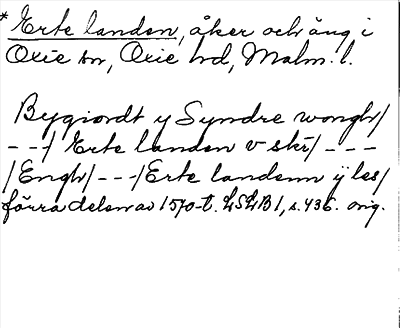 * Erte landen, åker och äng i
Oxie sn, Oxie hd, Malm. l.
Bygiordt y Syndre wongh/
- - -/ Erte landen v skr/ - - -
/Engh/ - - -/Erte landenn ÿ les/
förra delen av 1570-t. LSLB 1, s. 436. orig.